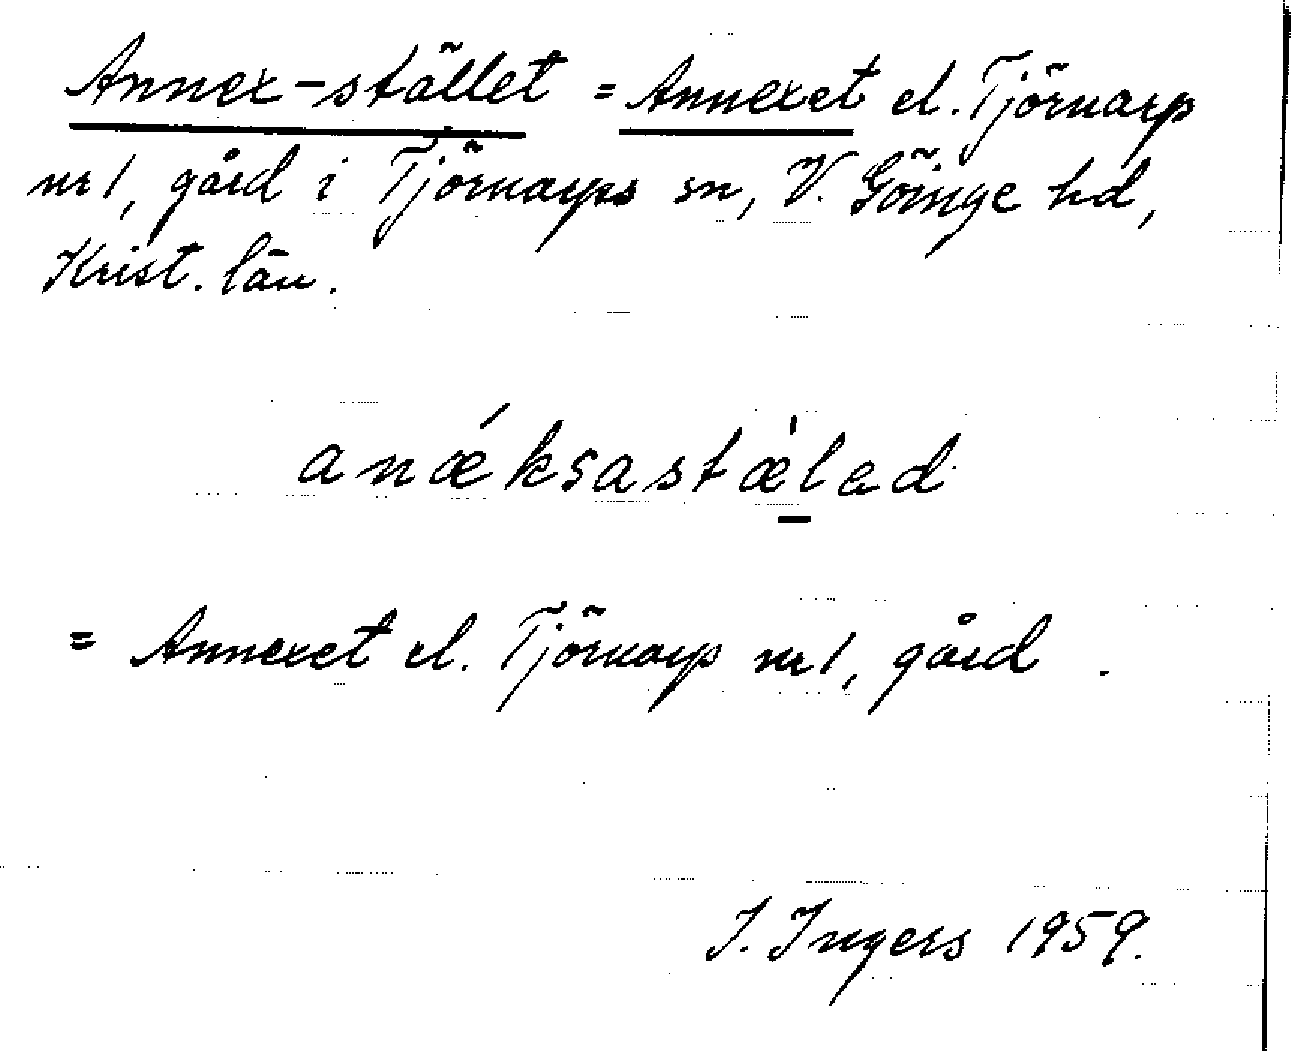 Annex-stället = Annexet el. Tjörnarp
nr 1, gård i Tjörnarps sn, V. Göinge hd,
Krist. län.
anǽksastæ̀lad
= Annexet el. Tjörnarp nr 1, gård .
I. Ingers 1959.